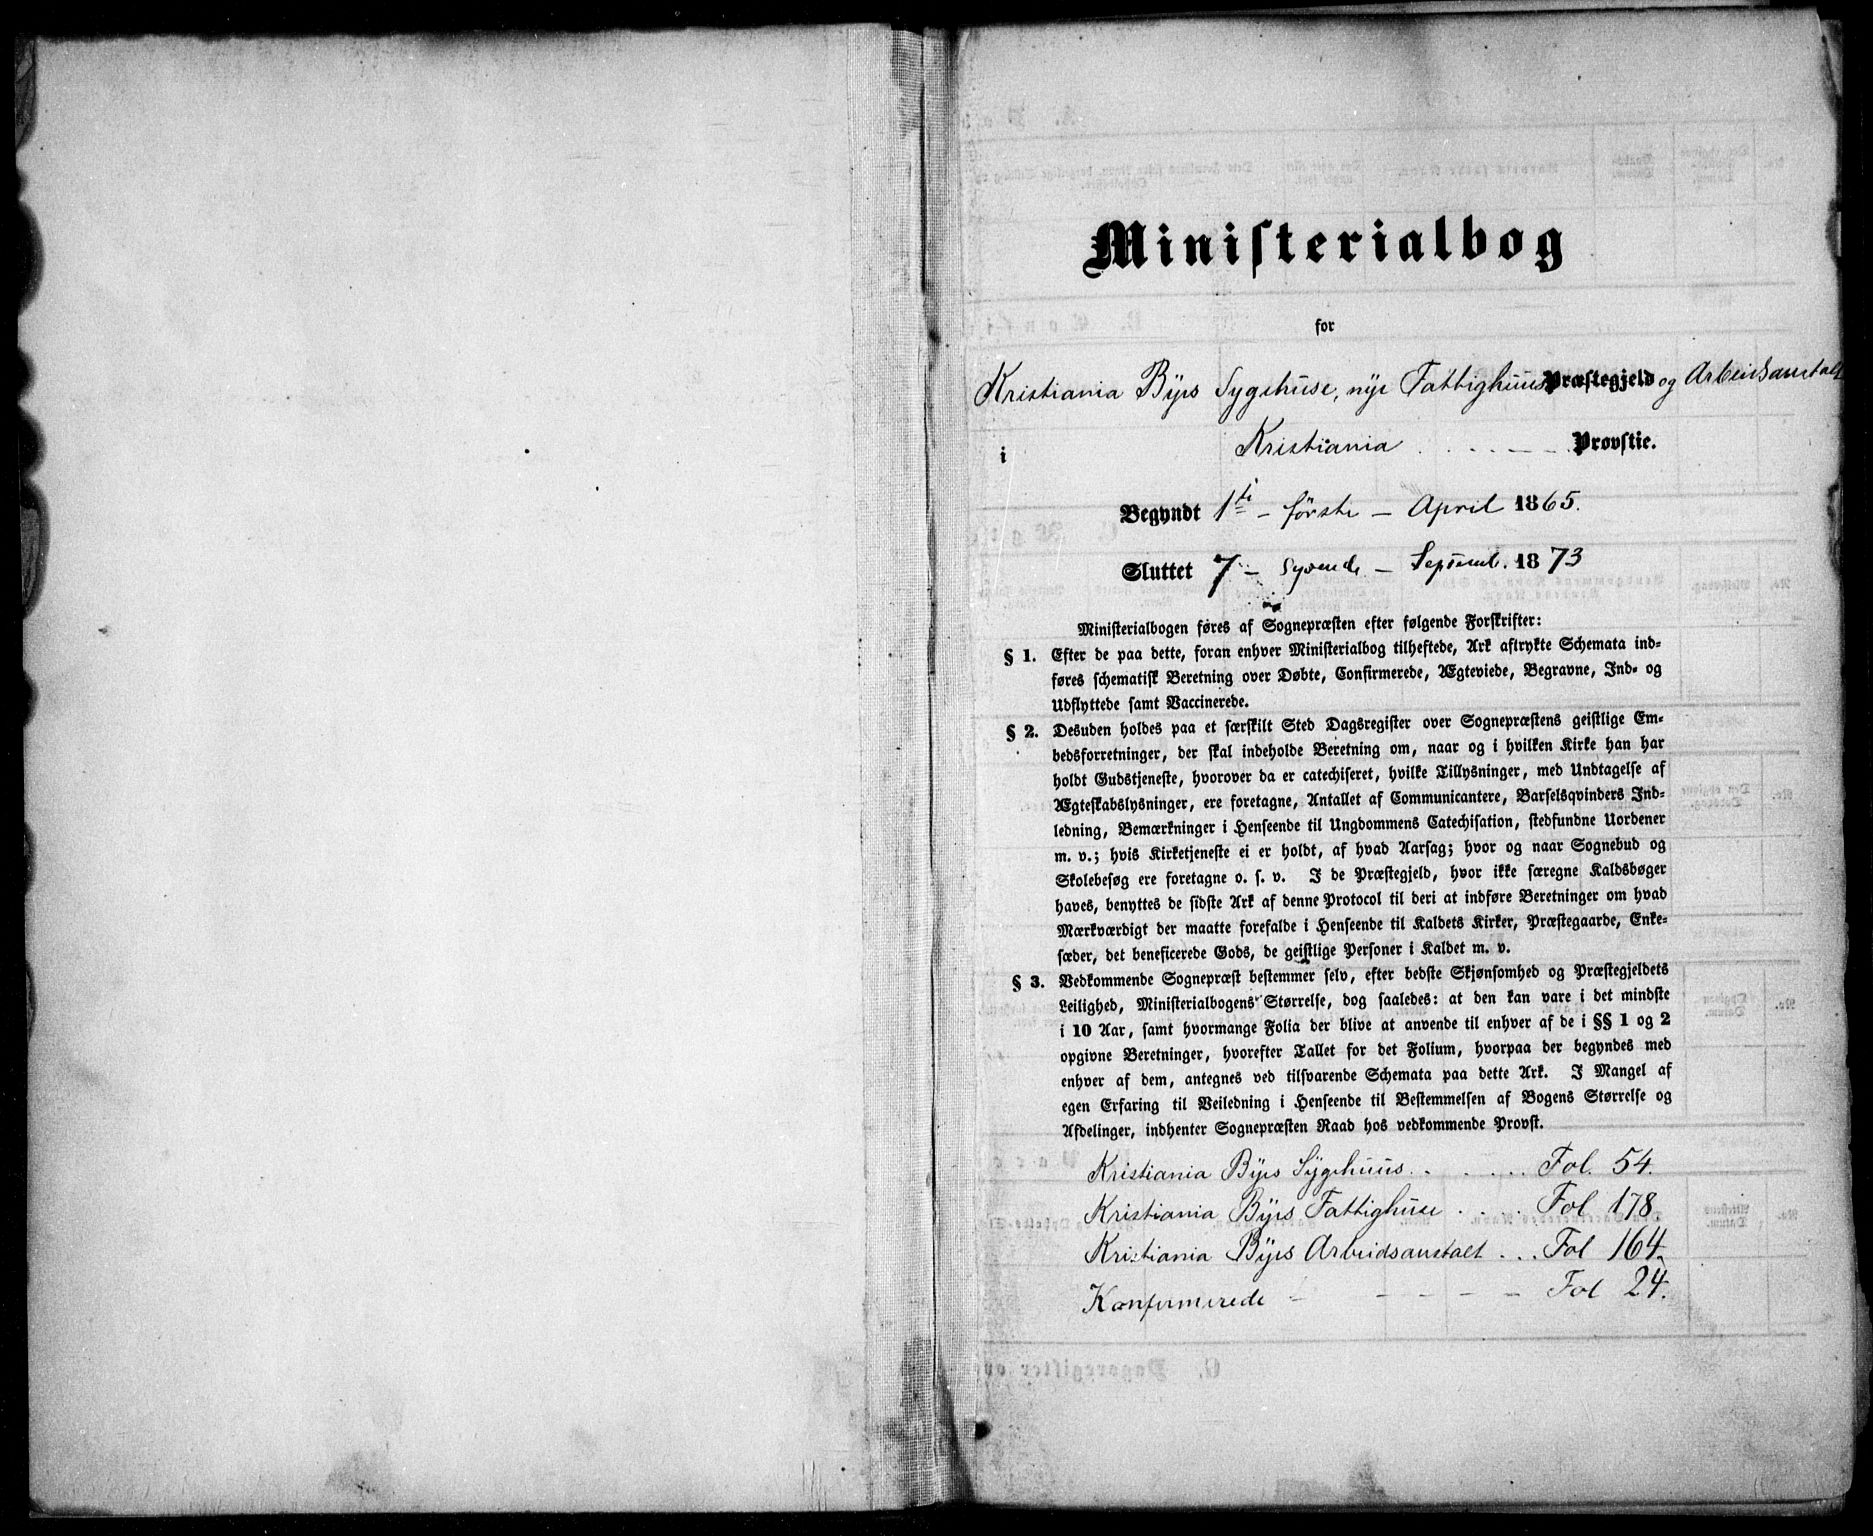 Ministerialbog
for
Kristiania Byes Sygehuse, nye Fattighuus Præstegjeld og Arbeidsanstalt
i Kristiania Provstie.
Begyndt 1ste – første – April 1865.
Sluttet 7 – syvende – Septemb. 1873
Ministerialbogen føres af Sognepræsten efter følgende Forskrifter:
§ 1. Efter de paa dette, foran enhver Ministerialbog tilheftede, Ark aftrykte Schemata ind-
føres schematisk Beretning over Døbte, Confirmerede, Ægteviede, Begravne, Ind- og
Udflyttede samt Vaccinerede.
§ 2. Desuden holdes paa et særskilt Sted Dagsregister over Sognepræstens geistlige Em-
bedsforretninger, der skal indeholde Beretning om, naar og i hvilken Kirke han har
holdt Gudstjeneste, hvorover da er catechiseret, hvilke Tillysninger, med Undtagelse af
Ægteskabslysninger, ere foretagne, Antallet af Communicantere, Barselsqvinders Ind-
ledning, Bemærkninger i Henseende til Ungdommens Catechisation, stedfundne Uordener
m. v.; hvis Kirketjeneste ei er holdt, af hvad Aarsag; hvor og naar Sognebud og
Skolebesøg ere foretagne o. s. v. I de Præstegjeld, hvor ikke særegne Kaldsbøger
haves, benyttes de sidste Ark af denne Protocol til deri at indføre Beretninger om hvad
Mærkværdigt der maatte forefalde i Henseende til Kaldets Kirker, Præstegaarde, Enke-
sæder, det beneficerede Gods, de geistlige Personer i Kaldet m. v.
§ 3. Vedkommende Sognepræst bestemmer selv, efter bedste Skjønsomhed og Præstegjeldets
Leilighed, Ministerialbogens Størrelse, dog saaledes: at den kan vare i det mindste
i 10 Aar, samt hvormange Folia der blive at anvende til enhver af de i §§ 1 og 2
opgivne Beretninger, hvorefter Tallet for det Folium, hvorpaa der begyndes med
enhver af dem, antegnes ved tilsvarende Schemata paa dette Ark. I Mangel af
egen Erfaring til Veiledning i Henseende til Bestemmelsen af Bogens Størrelse og
Afdelinger, indhenter Sognepræsten Raad hos vedkommende Provst.
Kristiania Byes Sygehuus . . . . . Fol. 54.
Kristiania Byes Fattighuse . . . . Fol 178
Kristiania Byes Arbeidsanstalt . . . Fol 164
Konfirmerede – – – – – Fol 24.